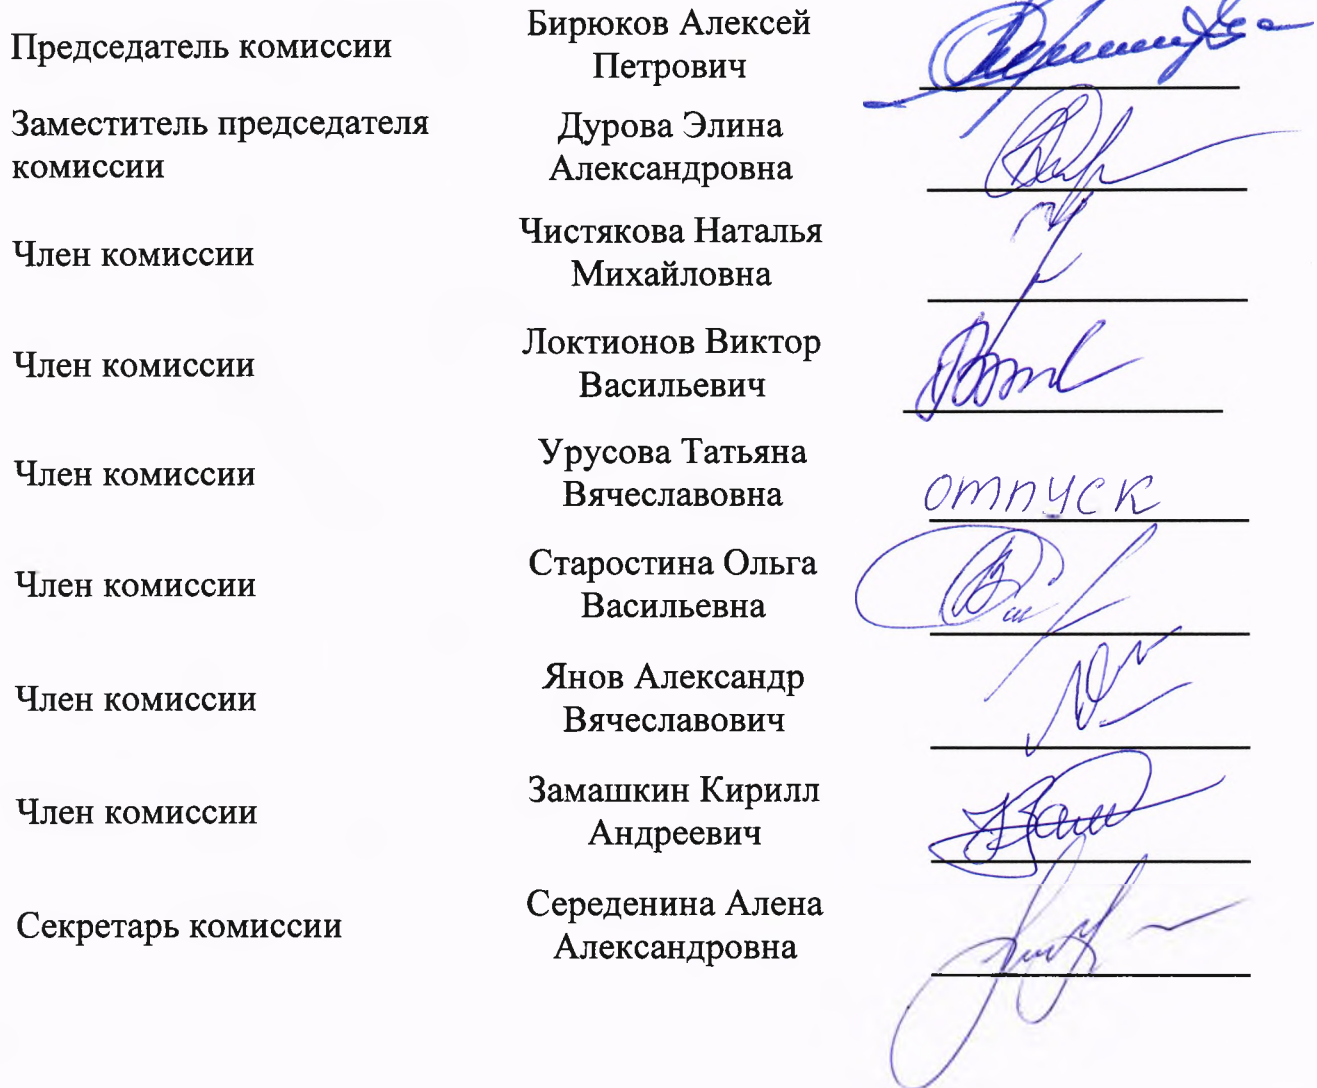 Председатель комиссии
Бирюков Алексей
Петрович
Заместитель председателя
комиссии
Дурова Элина
Александровна
Член комиссии
Чистякова Наталья
Михайловна
Член комиссии
Локтионов Виктор
Васильевич
Член комиссии
Урусова Татьяна
Вячеславовна
отпуск
Член комиссии
Старостина Ольга
Васильевна
Член комиссии
Янов Александр
Вячеславович
Член комиссии
Замашкин Кирилл
Андреевич
Секретарь комиссии
Середенина Алена
Александровна